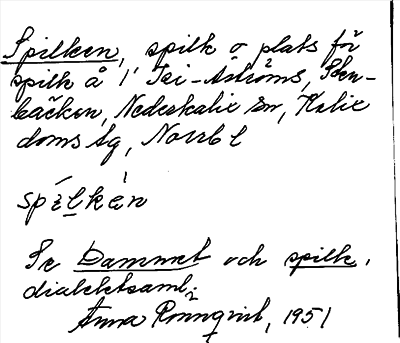 Spilken, spilk o plats för
spilk å i Tri-Åströms, Sten-
bäcken, Nederkalix sn, Kalix
doms lg, Norrb l
spílkèn
Se Dammet och spilk,
dialektsaml.
Anna Rönnqvist, 1951